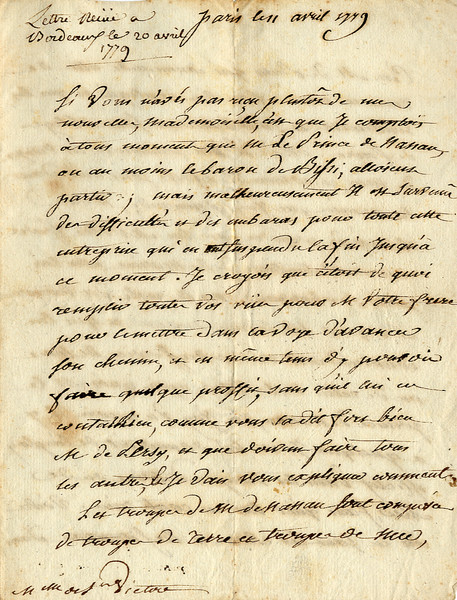 Lettre Reçüe a
Bordeaux le 20 avril
1779
paris le 11 avril 1779
Si Vous n'avés pas reçu plutôt de mes
nouvelle, Mademoiselle, c'est que Je comptois
à tous moment que M Le Prince de Nassau,
ou au moins le baron de alloient
partir; mais malheureusement Il est Survenu
des difficultés et des embaras pour toute cette
entreprise qui en ont suspendu la fin Jusqu'à
ce moment. Je croyois que c'étoit de quoi
remplir toute vos vües pour M Votre frere
pour le mettre dans la voye d'avancer
son chemin, et en même tems d'y pouvoir
faire quelque proffit, sans qu'il lui en
coutat rien, comme vous l'a dit fort bien
M de et que doivent faire tous
les autres, & Je vais vous expliquer comment.
Les troupes de M de Nassau sont composées
de troupes de Terre et troupes de Mer,
Victoire